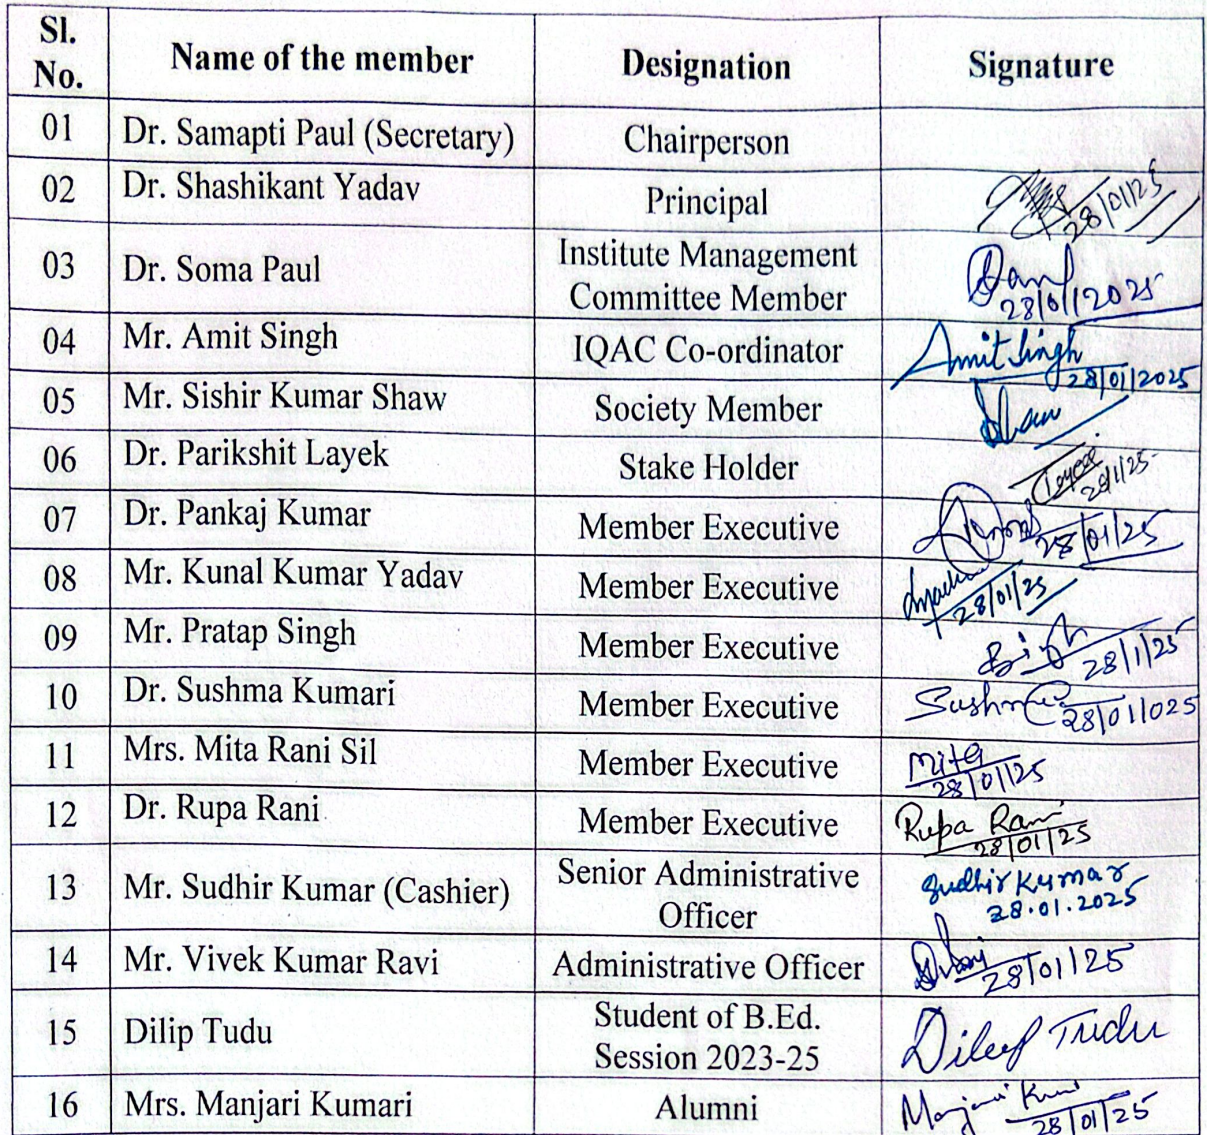 Sl. No. Name of the member Designation Signature
01 Dr. Samapti Paul (Secretary) Chairperson
02 Dr. Shashikant Yadav Principal 28/01/25
03 Dr. Soma Paul Institute Management Committee Member 28/01/2025
04 Mr. Amit Singh IQAC Co-ordinator Amit Singh 28/01/2025
05 Mr. Sishir Kumar Shaw Society Member Shaw
06 Dr. Parikshit Layek Stake Holder 28/1/25
07 Dr. Pankaj Kumar Member Executive 28/01/25
08 Mr. Kunal Kumar Yadav Member Executive 28/01/25
09 Mr. Pratap Singh Member Executive 28/1/25
10 Dr. Sushma Kumari Member Executive 28/01/025
11 Mrs. Mita Rani Sil Member Executive Mita 28/01/25
12 Dr. Rupa Rani Member Executive Rupa Rani 28/01/25
13 Mr. Sudhir Kumar (Cashier) Senior Administrative Officer Sudhir Kumar 28.01.2025
14 Mr. Vivek Kumar Ravi Administrative Officer 28/01/25
15 Dilip Tudu Student of B.Ed. Session 2023-25 Dileep Tudu
16 Mrs. Manjari Kumari Alumni 28/01/25